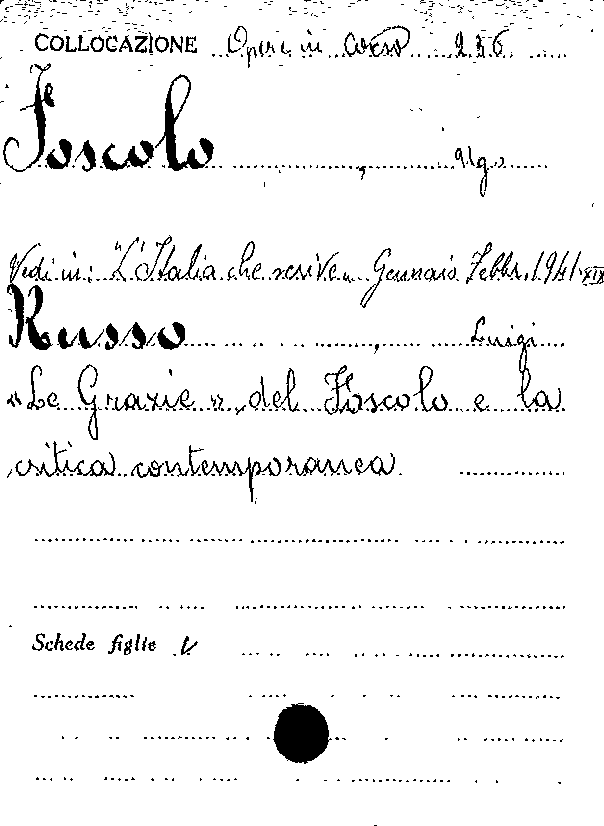 COLLOCAZIONE Opere in corso 236
Foscolo, Ugo
Vedi in: "L'Italia che scrive" Gennaio Febbr. 1941-XIX
Russo, Luigi
«Le Grazie» del Foscolo e la
critica contemporanea
Schede figlie V